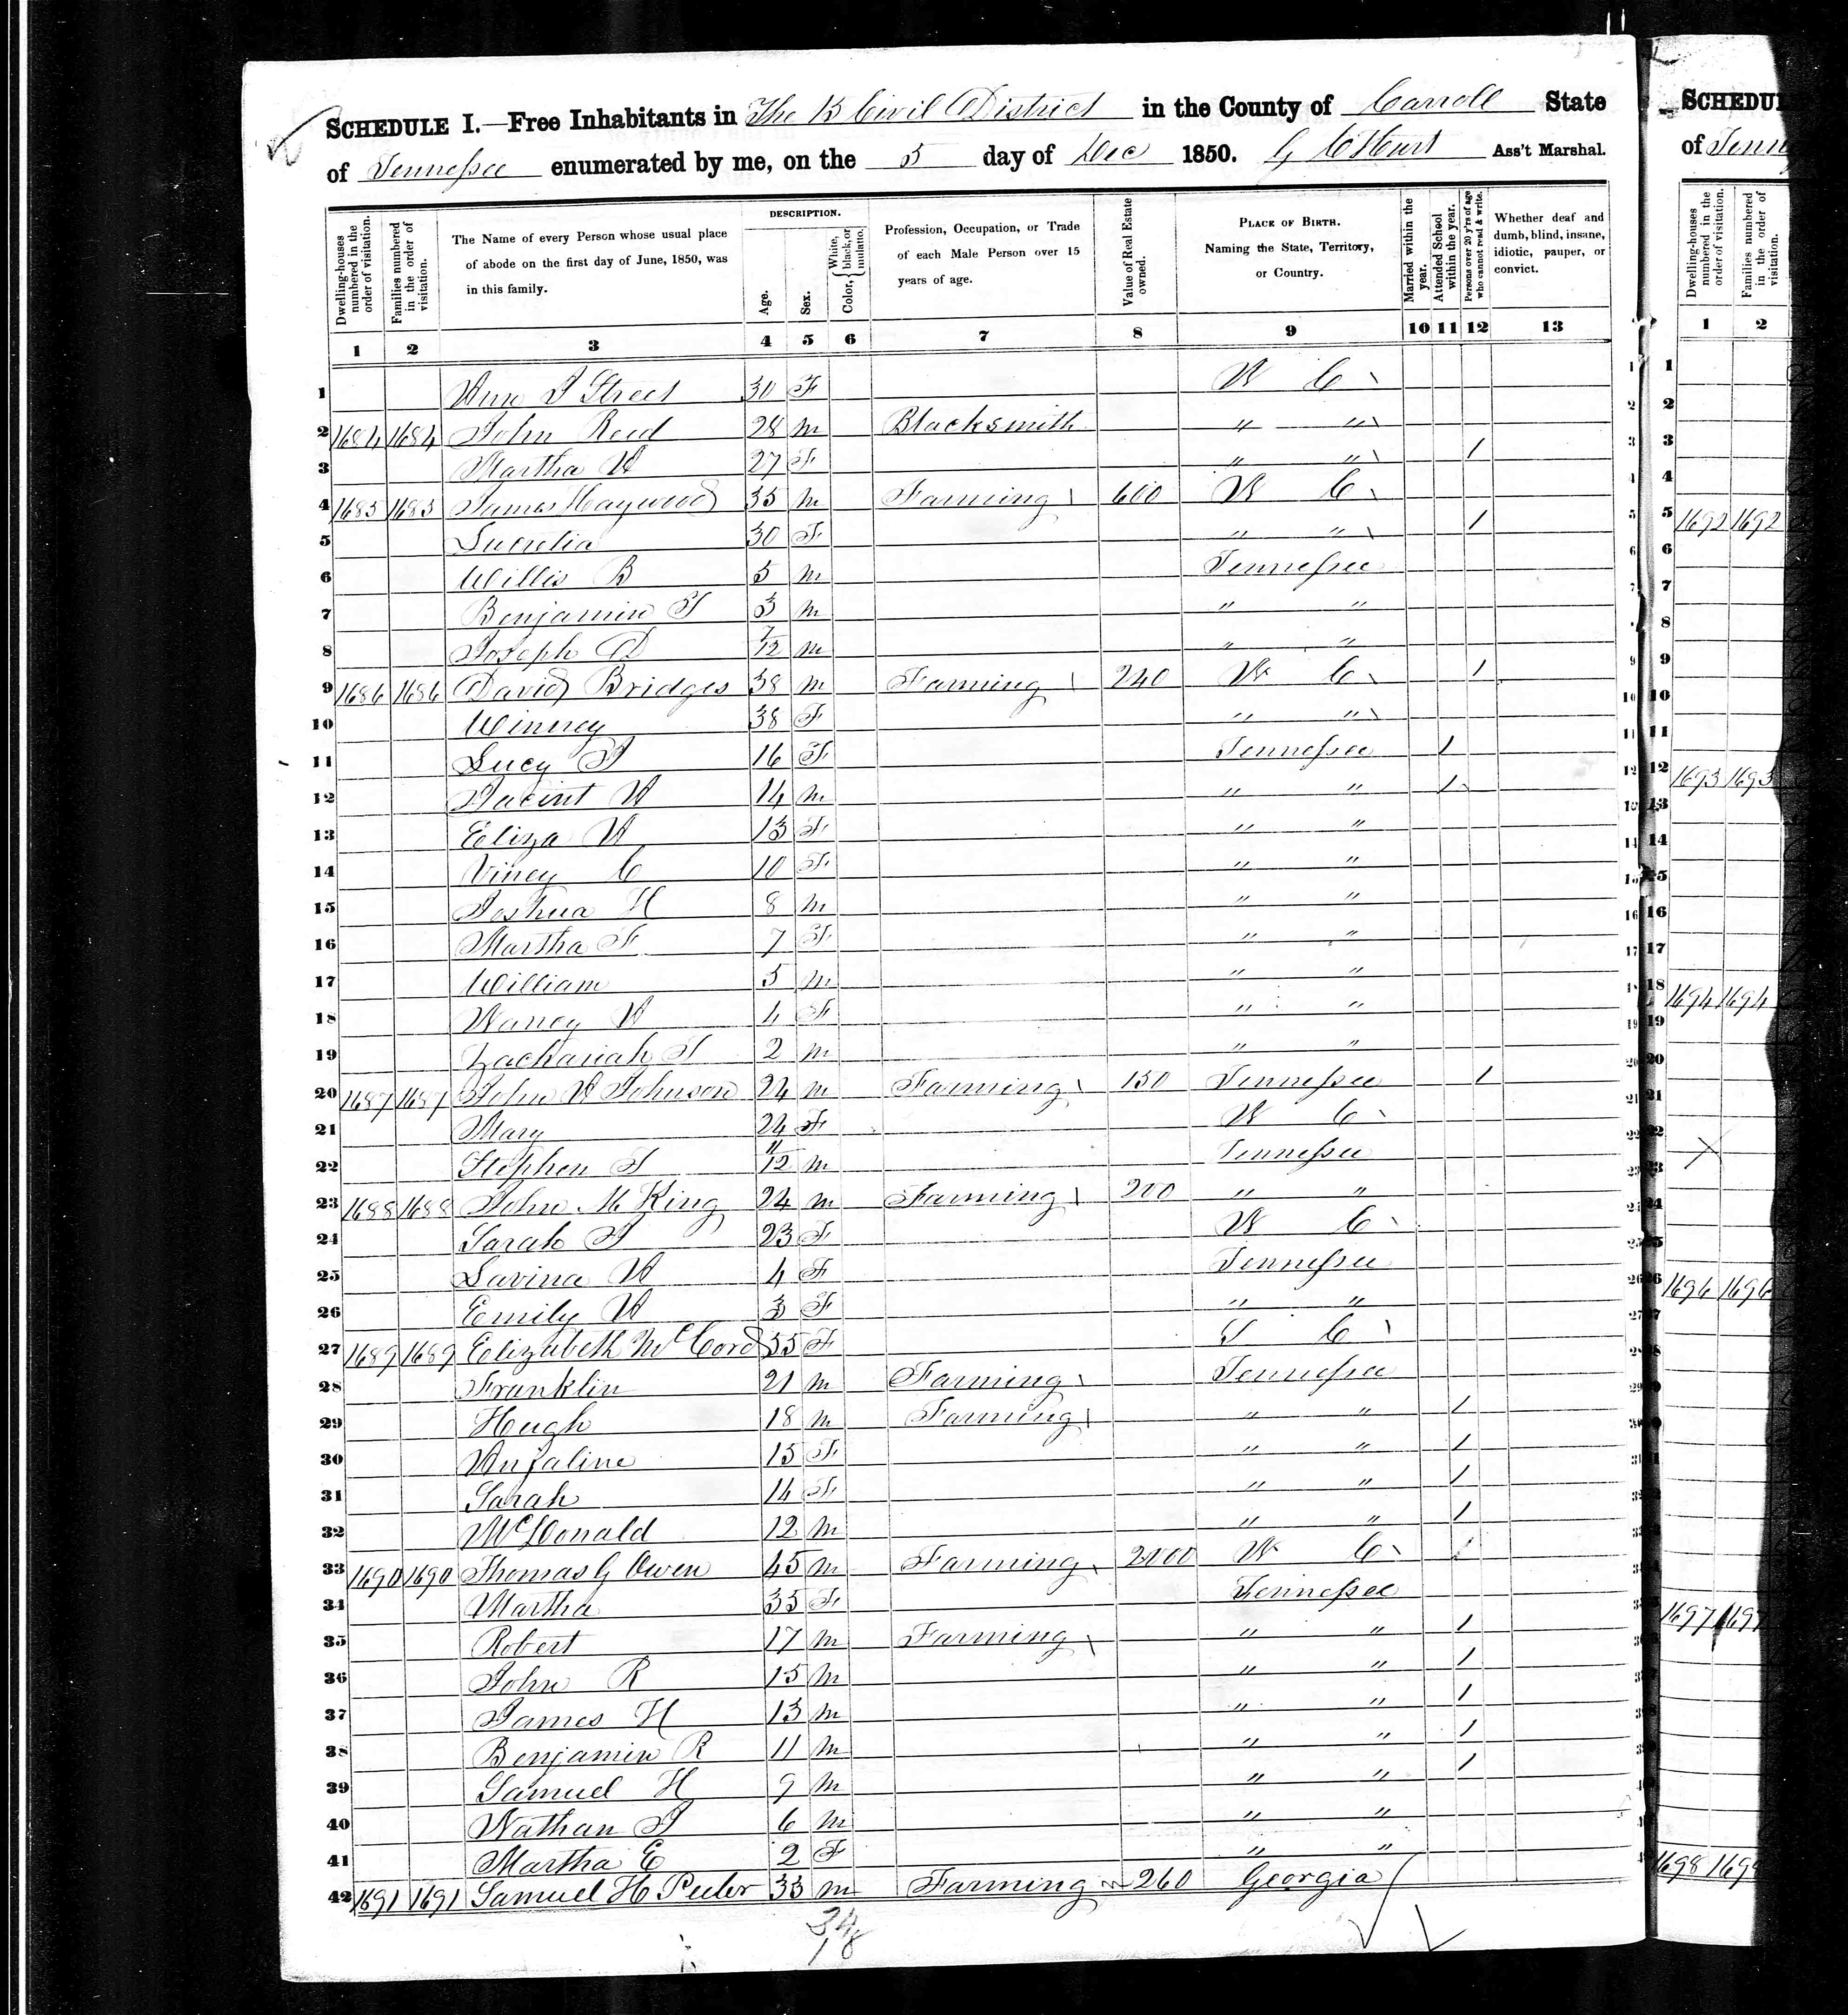 SCHEDULE I.—Free Inhabitants in The 13 Civil District in the County of Carroll State
of Tennessee enumerated by me, on the 5 day of Dec 1850. G C Hurt Ass't Marshal.
Dwelling-houses numbered in the order of visitation.
Families numbered in the order of visitation.
The Name of every Person whose usual place of abode on the first day of June, 1850, was in this family.
DESCRIPTION.
Age.
Sex.
Color, { White, black, or mulatto.
Profession, Occupation, or Trade of each Male Person over 15 years of age.
Value of Real Estate owned.
PLACE OF BIRTH. Naming the State, Territory, or Country.
Married within the year.
Attended School within the year.
Persons over 20 y'rs of age who cannot read & write.
Whether deaf and dumb, blind, insane, idiotic, pauper, or convict.
1 2 3 4 5 6 7 8 9 10 11 12 13
1 Ann J Street 30 F N C
2 1684 1684 John Reed 28 m Blacksmith " "
3 Martha A 27 F " " 1
4 1685 1685 James Haywood 35 m Farming 600 N C
5 Lucretia 30 F " " 1
6 Willis B 5 m Tennessee
7 Benjamin F 3 m " "
8 Joseph D 7/12 m " "
9 1686 1686 David Bridges 38 m Farming 240 N C 1
10 Winney 38 F " "
11 Lucy J 16 F Tennessee 1
12 A 14 m " " 1
13 Eliza A 13 F " "
14 Viney C 10 F " "
15 Joshua H 8 m " "
16 Martha F 7 F " "
17 William 5 m " "
18 Nancy A 4 F " "
19 Zachariah T 2 m " "
20 1687 1687 John A Johnson 24 m Farming 150 Tennessee 1
21 Mary 24 F N C
22 Stephen T 11/12 m Tennessee
23 1688 1688 John M King 24 m Farming 200 " "
24 Sarah J 23 F N C
25 Lavina A 4 F Tennessee
26 Emily A 3 F " "
27 1689 1689 Elizabeth McCord 55 F S C
28 Franklin 21 m Farming Tennessee
29 Hugh 18 m Farming " " 1
30 Anjaline 15 F " " 1
31 Sarah 14 F " " 1
32 McDonald 12 m " " 1
33 1690 1690 Thomas G Owen 45 m Farming 2000 N C
34 Martha 35 F Tennessee
35 Robert 17 m Farming " " 1
36 John R 15 m " " 1
37 James H 13 m " " 1
38 Benjamin R 11 m " " 1
39 Samuel H 9 m " " 1
40 Nathan J 6 m " "
41 Martha E 2 F " "
42 1691 1691 Samuel H Peeler 33 m Farming 260 Georgia
34
18
SCHEDU
of Tenn
Dwelling-houses numbered in the order of visitation.
Families numbered in the order of visitation.
1 2
1692 1692
1693 1693
1694 1694
1696 1696
1697 1697
1698 169